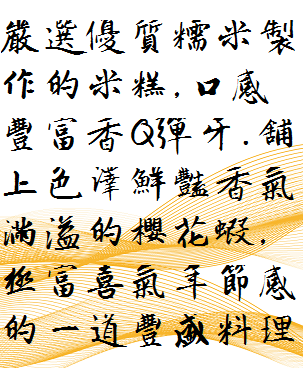 嚴選優質糯米製
作的米糕,口感
豐富香Q彈牙.舖
上色澤鮮豔香氣
滿溢的櫻花蝦,
極富喜氣年節感
的一道豐盛料理